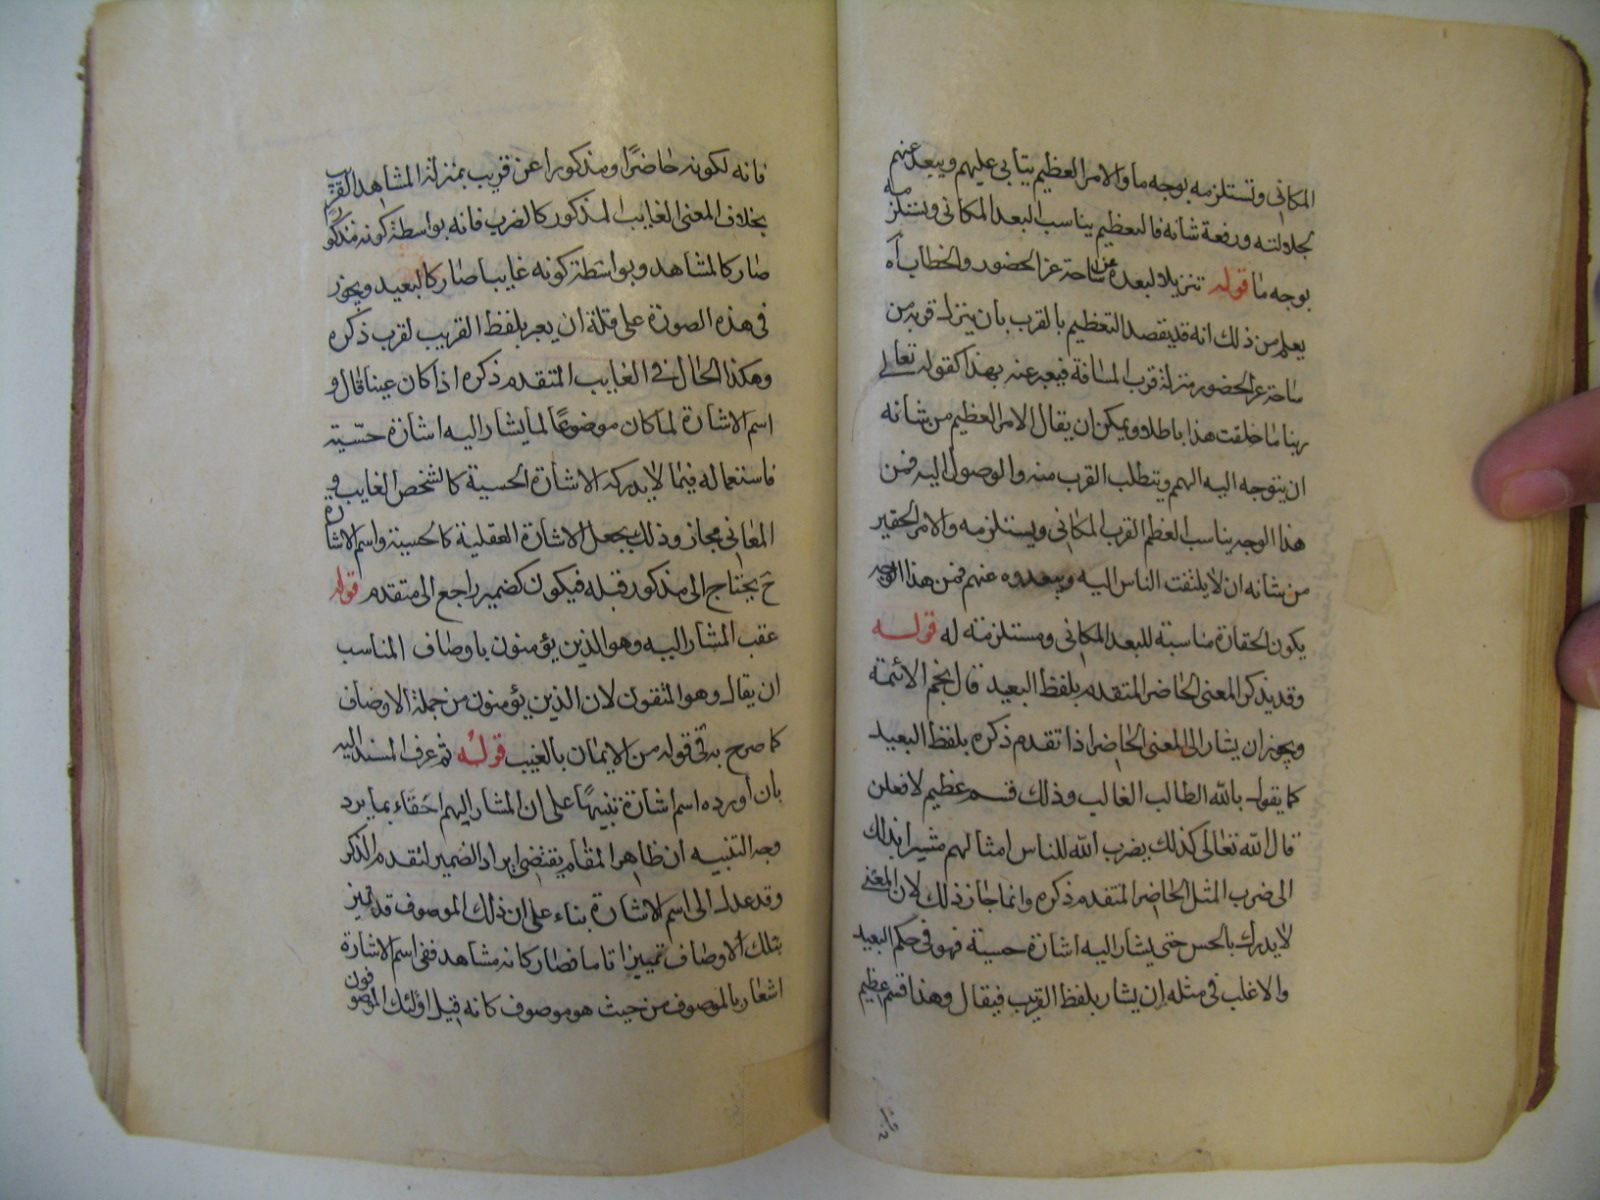 المكانى وتستلزمه بوجه ما والامر العظيم يتأبى عليهم ويبعد عنهم
لجلالته ورفعة شانه فالتعظيم يناسب البعد المكانى ويستلزمه
بوجه ما قوله تنزيلا لبعده عن ساحة عز الحضور والخطاب آه
يعلم من ذلك انه قد يقصد التعظيم بالقرب بأن ينزل قربه من
ساحة عز الحضور منزلة قرب المسافة فيعبر عنه بهذا كقوله تعالى
ربنا ما خلقت هذا باطلا ويمكن ان يقال الامر العظيم من شانه
ان يتوجه اليه الهمم ويتطلب القرب منه والوصول اليه فمن
هذا الوجه يناسب العظم القرب المكانى ويستلزمه والامر الحقير
من شانه ان لا يلتفت الناس اليه ويبعدوه عنهم فمن هذا الوجه
يكون الحقارة مناسبة للبعد المكانى ومستلزمة له قوله
وقد يذكر المعنى الحاضر المتقدم بلفظ البعيد قال نجم الائمة
ويجوز ان يشار الى المعنى الحاضر اذا تقدم ذكره بلفظ البعيد
كما يقول بالله الطالب الغالب وذلك قسم عظيم لافعلن
قال الله تعالى كذلك يضرب الله للناس امثالهم مشيرا بذلك
الى ضرب المثل الحاضر المتقدم ذكره وانما جاز ذلك لان المعنى
لا يدرك بالحس حتى يشار اليه اشارة حسية فهو فى حكم البعيد
والاغلب فى مثله ان يشار بلفظ القريب فيقال وهذا قسم عظيم
فانه لكونه حاضرًا ومذكورا عن قريب بمنزلة المشاهد القريب
بخلاف المعنى الغايب المذكور كالضرب فانه بواسطة كونه مذكورًا
صار كالمشاهد وبواسطة كونه غايبا صار كالبعيد ويجوز
فى هذه الصورة على قلة ان يعبر بلفظ القريب لقرب ذكره
وهكذا الحال فى الغايب المتقدم ذكره اذا كان عينا قال و
اسم الاشارة لما كان موضوعًا لما يشار اليه اشارة حسّيّة
فاستعماله فيما لا يدركه الاشارة الحسية كالشخص الغايب و
المعانى مجاز وذلك بجعل الاشارة العقلية كالحسية واسم الاشارة
ح يحتاج الى مذكور قبله فيكون كضمير راجع الى متقدم قوله
عقب المشار اليه وهو الذين يؤمنون باوصاف المناسب
ان يقال وهو المتقون لان الذين يؤمنون من جملة الاوصاف
كما صرح به فى قوله من الايمان بالغيب قوله ثم عرف المسند اليه
بان اورده اسم اشارة تنبيهًا على ان المشار اليهم احقاء بما يرد
وجه التنبيه ان ظاهر المقام يقتضى ايراد الضمير لتقدم الذكر
وقد عدل الى اسم الاشارة بناء على ان ذلك الموصوف قد تميز
بتلك الاوصاف تمييزا تاما فصار كانه مشاهد ففى اسم الاشارة
اشعار بالموصوف من حيث هو موصوف كانه قيل اولئك الموصوفون